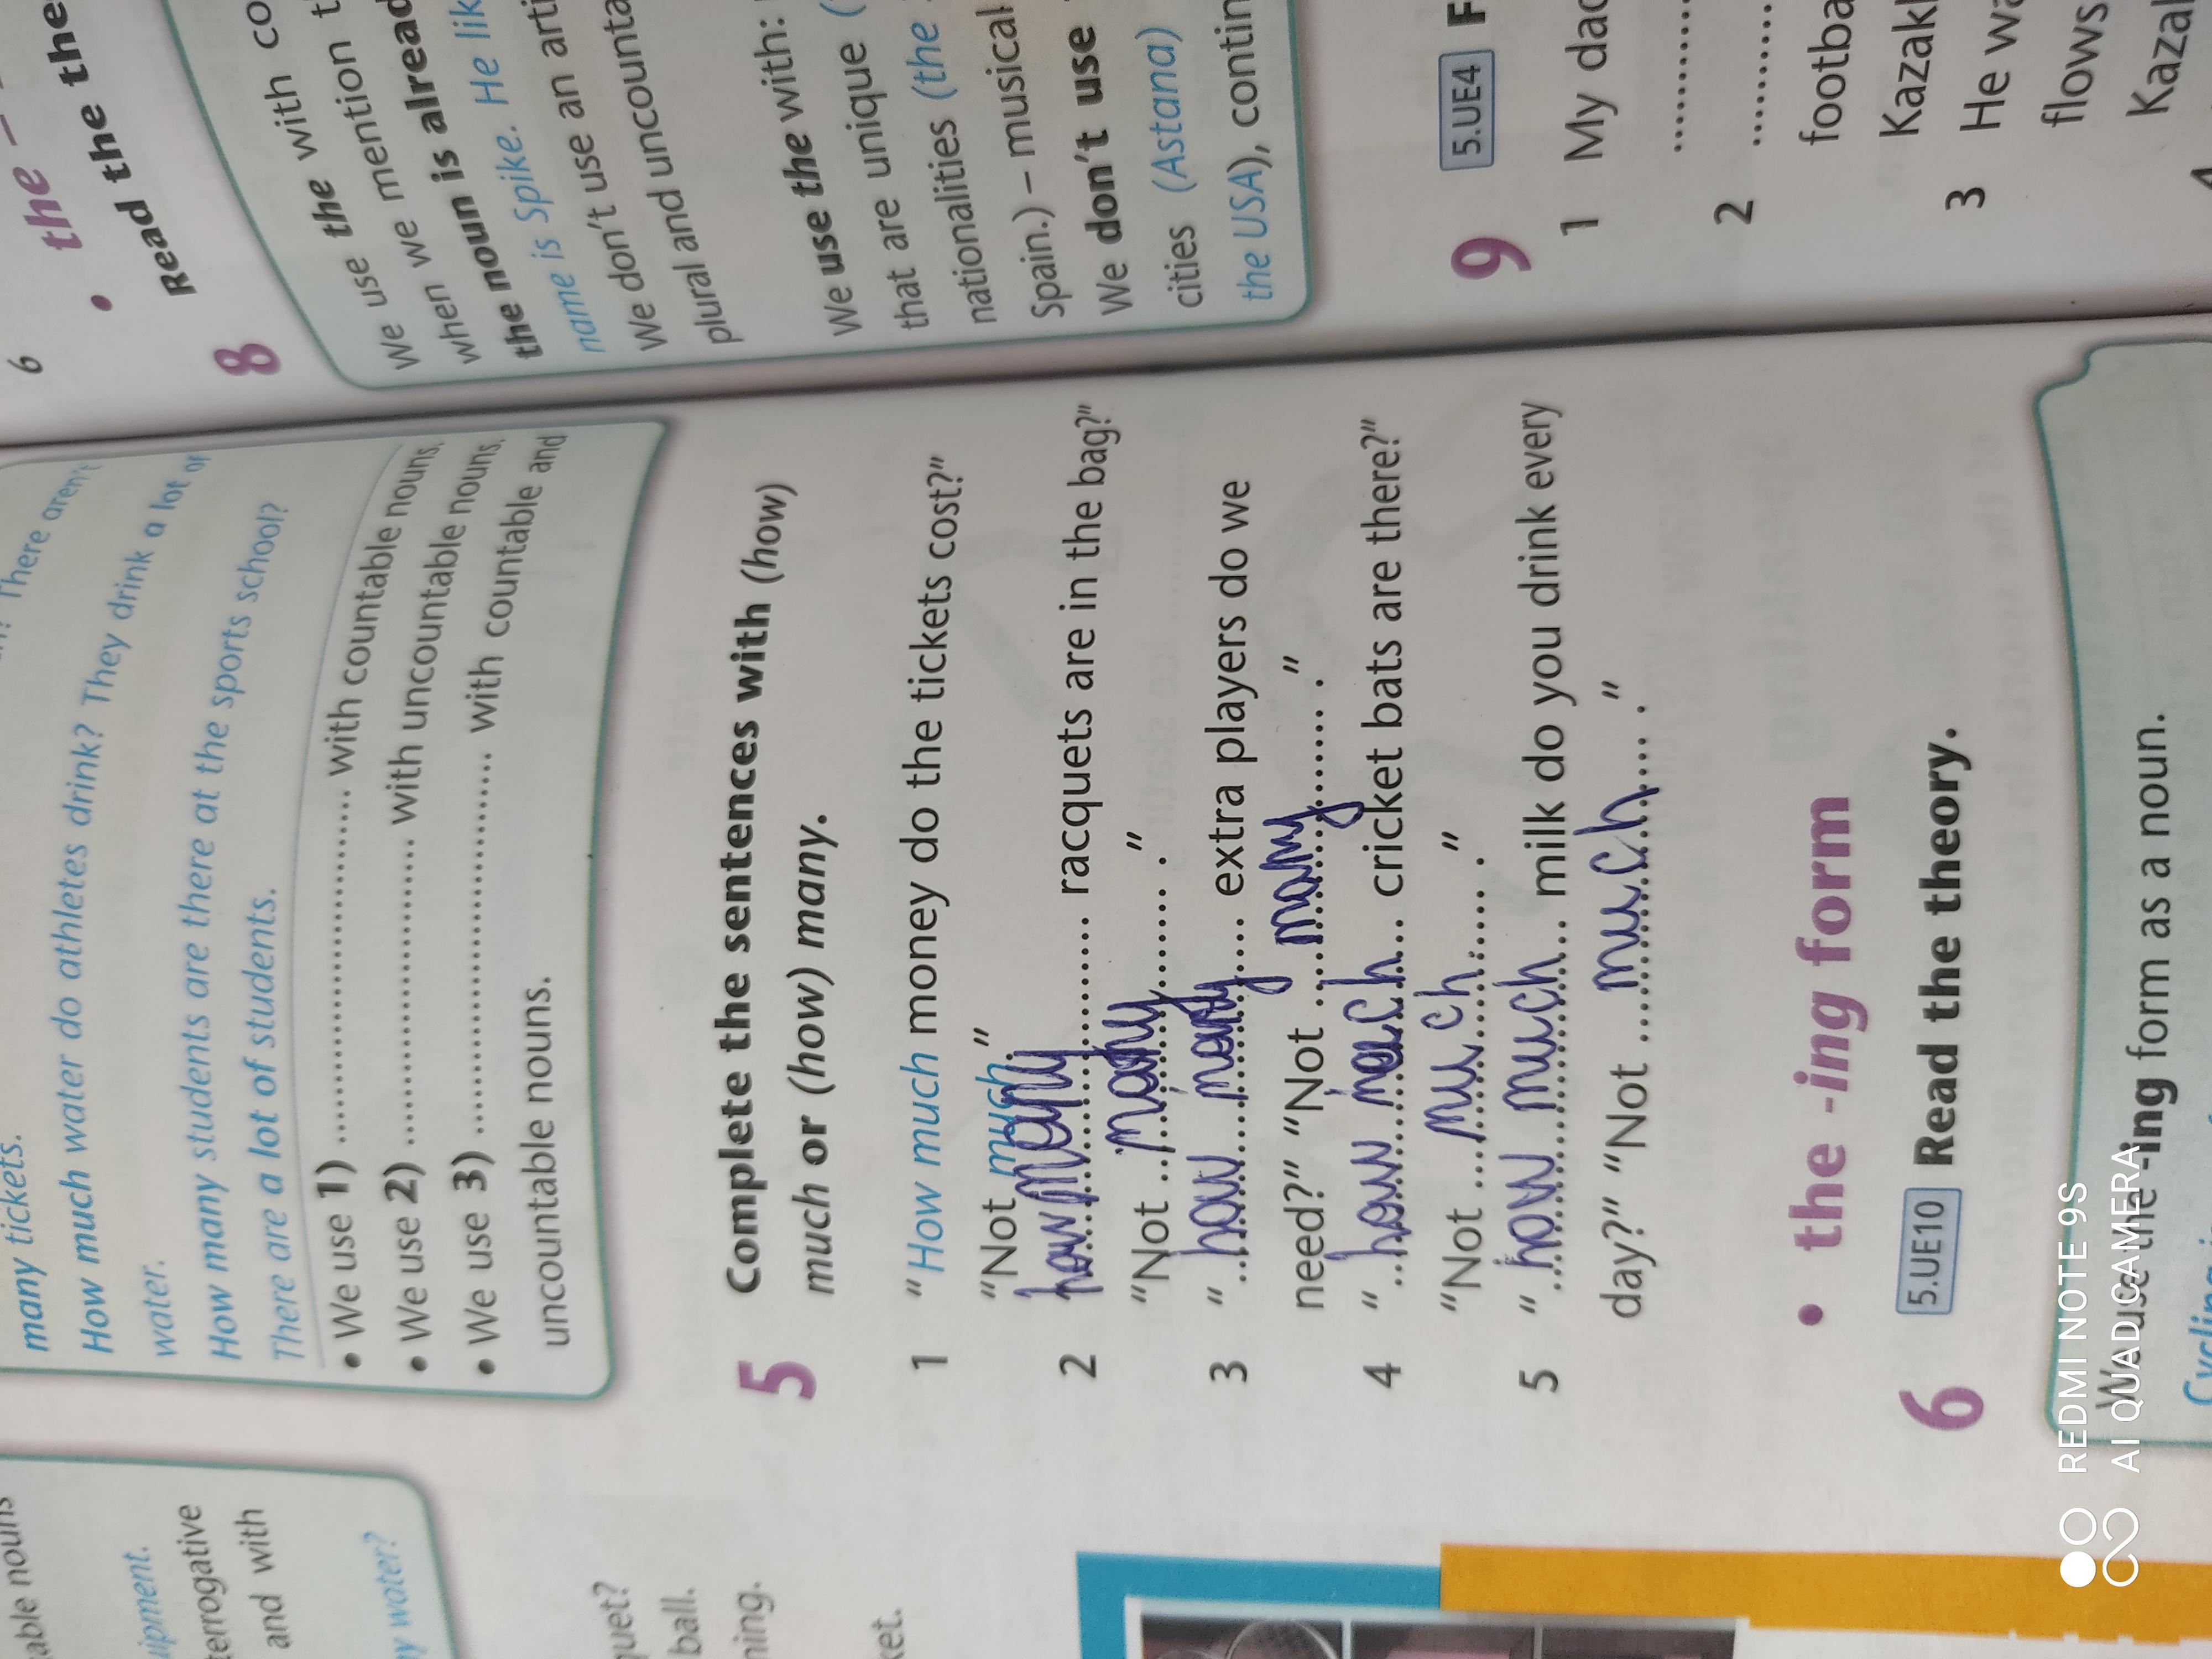 able nouns
uipment.
terrogative
and with
ny water?
quet?
ball.
ning.
ket.
There aren't
many tickets.
How much water do athletes drink? They drink a lot of
water.
How many students are there at the sports school?
There are a lot of students.
• We use 1) .................... with countable nouns.
• We use 2) .................... with uncountable nouns.
• We use 3) .................... with countable and
uncountable nouns.
5 Complete the sentences with (how)
much or (how) many.
1 "How much money do the tickets cost?"
"Not much."
2 how many racquets are in the bag?"
"Not many."
3 "how many extra players do we
need?" "Not many."
4 "how much cricket bats are there?"
"Not much."
5 "how much milk do you drink every
day?" "Not much."
• the -ing form
6 5.UE10 Read the theory.
We use the -ing form as a noun.
6
• the –
Read the the
8
We use the with co
we mention t
when we alread
the noun is
name is Spike. He lik
We don't use an arti
plural and uncounta
We use the with:
that are unique (
nationalities (the
Spain.) – musical
We don't use
cities (Astana)
the USA), contin
9 5.UE4 F
1 My dad
..........
2 ..........
footba
Kazakh
3 He wa
flows
Kazak
4
REDMI NOTE 9S
AI QUAD CAMERA